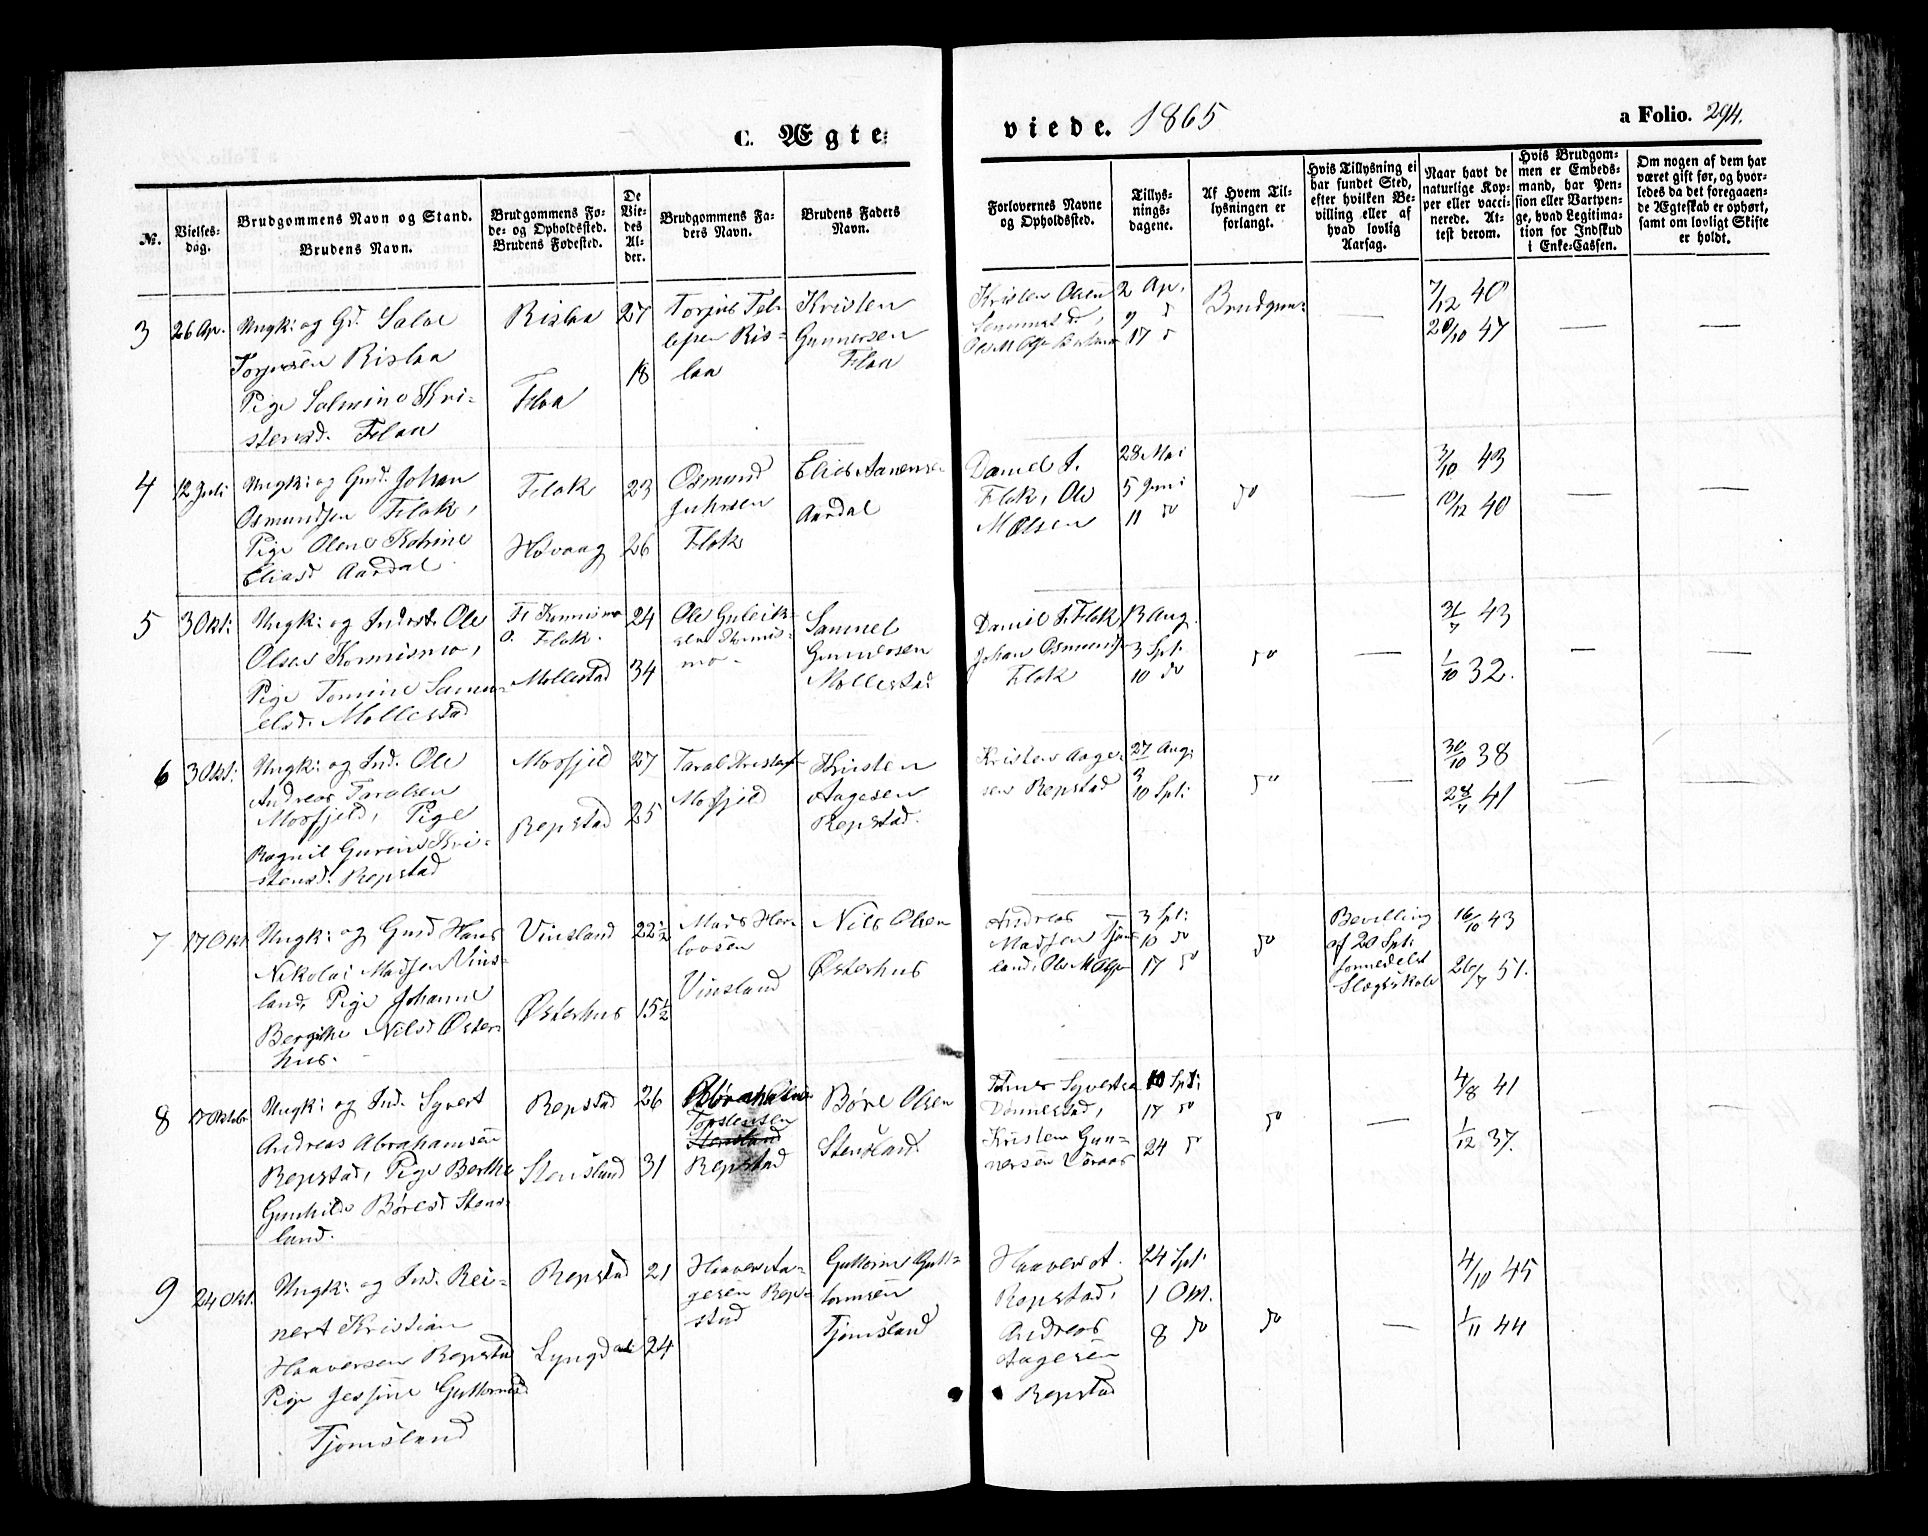 C. Ægte=
viede. 1865
a Folio. 294.
№.
Vielses-
dag.
Brudgommens Navn og Stand.
Brudens Navn.
Brudgommens Fø-
de- og Opholdssted.
Brudens Fødested.
De
Vie-
des
Al-
der.
Brudgommens Fa-
ders Navn.
Brudens Faders
Navn.
Forlovernes Navne
og Opholdssted.
Tillys-
nings-
dagene.
Af Hvem Til-
lysningen er
forlangt.
Hvis Tillysning ei
har fundet Sted,
efter hvilken Be-
villing eller af
hvad lovlig
Aarsag.
Naar havt de
naturlige Kop-
per eller vacci-
nerede. At-
test derom.
Hvis Brudgom-
men er Embeds-
mand, har Pen-
sion eller Vartpen-
ge, hvad Legitima-
tion for Indskud
i Enke-Cassen.
Om nogen af dem har
været gift før, og hvor-
ledes da det foregaaen-
de Ægteskab er ophørt,
samt om lovligt Skifte
er holdt.
3
26 Ap.
Ungk: og Gd. Salve
Torjusen Rislaa
Pige Salmine Kri-
stensd. Flaa
Rislaa
Flaa
27
18
Torjus Tel-
lefsen Ris-
laa
Kristen
Gunnersen
Flaa
Kristen Olsen
2 Ap.
9 d
17 d
Brudgom:
7/12 40
29/10 47
4
12 Juli
Ungk: og Gud. Johan
Osmundsen Flak,
Pige Olene Katrine
Eliasd Aardal
Flak
Høvaag
23
26
Osmund
Juhnsen
Flak
Elias Aanensen
Aardal
Daniel J.
Flak, Ole
M Olsen
28 Mai
5 Juni
11 do
do
3/10 43
10/12 40
5
3 Okt:
Ungk: og Inderst. Ole
Olsen Kornismo,
Pige Tomine Samu-
elsd. Mollestad
F. Kornismo
O. Flak.
Mollestad
24
34
Ole Guleik-
sen Kornis-
mo
Samuel
Gunnersen
Mollestad
Daniel J. Flak
Johan Osmunds
Flak
13 Aug.
3 Spt.
10 do
do
31/7 43
1/10 32.
6
3 Okt:
Ungk: og Ind. Ole
Andreas Taralsen
Mosfjeld, Pige
Ragnil Gurine Kri-
stensd. Repstad
Mosfjeld
Repstad
27
25
Taral Kristofs
Mosfjeld
Kristen
Aagesen
Repstad.
Kristen Aage-
sen Repstad
27 Aug:
3
10 Spt:
do
30/10 38
28/7 41
7
17 Okt
Ungk: og Gusd Hans
Nikolai Madsen Vins-
land, Pige Johanne
Bergithe Nilsd Øster-
hus.
Vinsland
Østerhus
22½
15½
Mads Har-
loosen
Vinsland
Nils Olsen
Østerhus
Andreas
Madsen Tjoms
land, Ole M Olsen
3 Spt:
10 do
17 do
do
Bevilling
af 20 Spt:
formedelst
Slægtskab
16/10 43
26/7 51.
8
17 Oktobr
Ungk: og Ind. Syvert
Andreas Abrahamsen
Repstad, Pige Berthe
Gunhilde Børesd Stens-
land.
Repstad
Stensland
26
31
Torstensen
Stensland
Repstad
Børe Olsen
Stensland
Tomes Syvertsen
Dønnestad,
Kristen Gun-
nersen Véraas
10 Spt:
17 do
24 do
do
4/8 41
1/12 37.
9
24 Okt.
Ungk: og Ind. Rei-
nert Kristian
Haaversen Repstad
Pige Jessine Guttormsd
Tjomsland
Repstad
Lyngdal
21
24
Haaver Aa-
gesen Rep-
stad
Guttorm Gutt-
ormsen
Tjomsland
Haaver A.
Repstad,
Andreas
Aagesen
Repstad
24 Spt:
1 Okt.
8 do
do
4/10 45
1/11 44